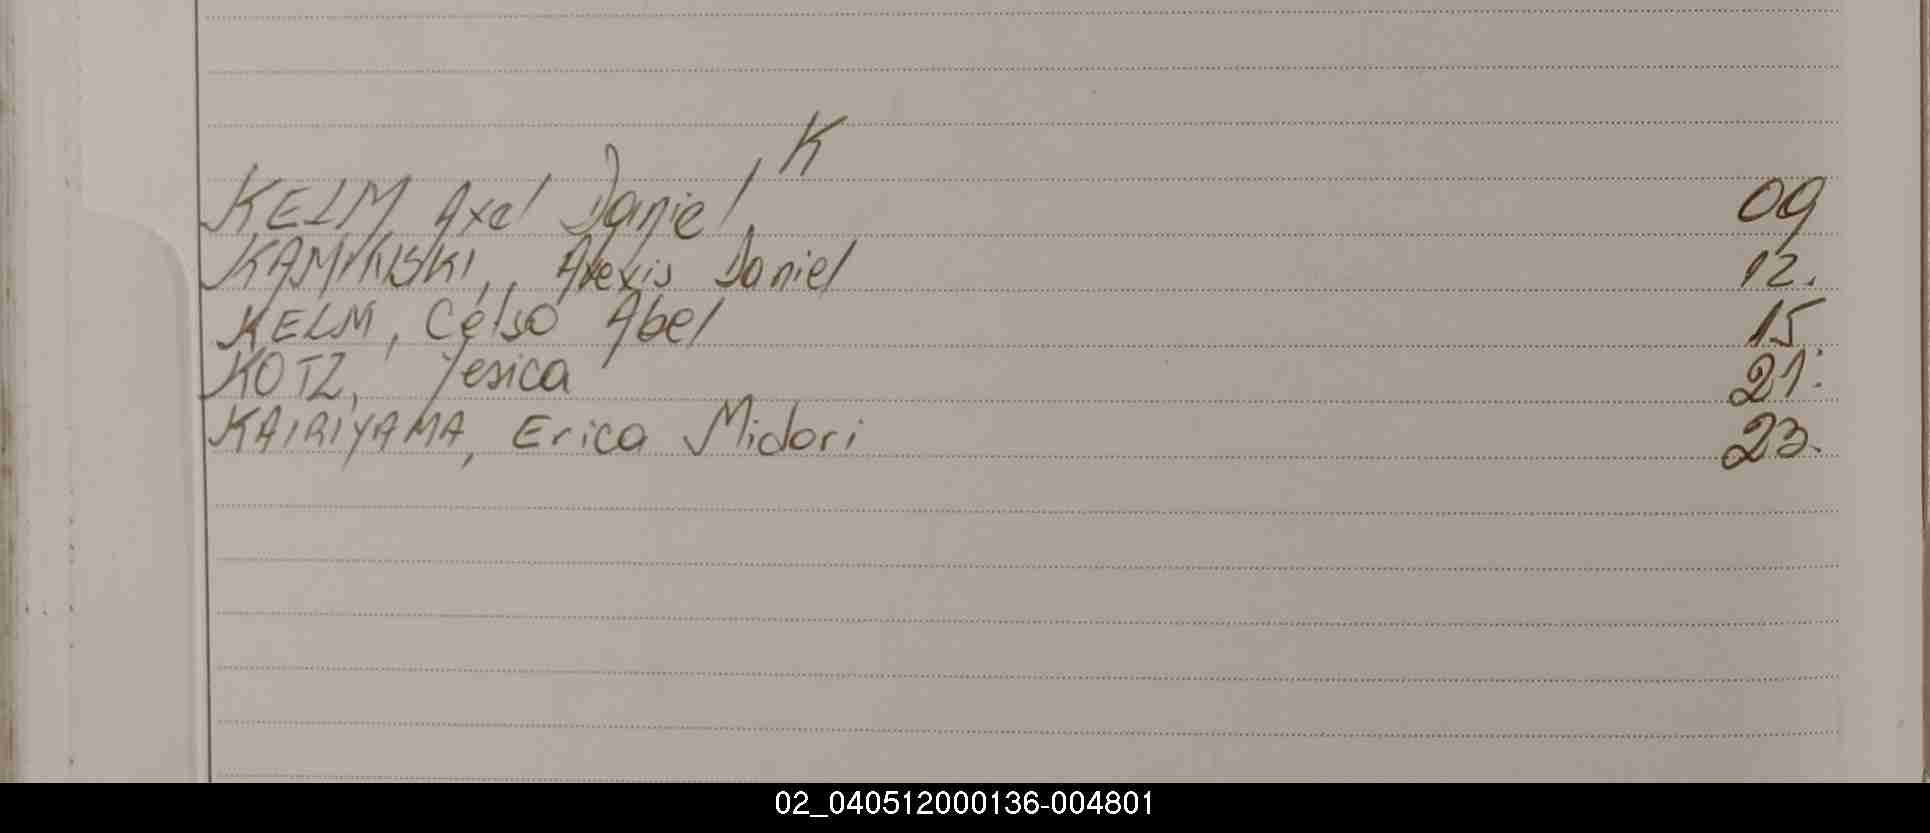 K
KELM Axel Daniel, 09
KAMINSKI, Alexis Daniel 12.
KELM, Celso Abel 15
KOTZ, Yesica 21.
KAIRIYAMA, Erica Midori 23.
02_040512000136-004801